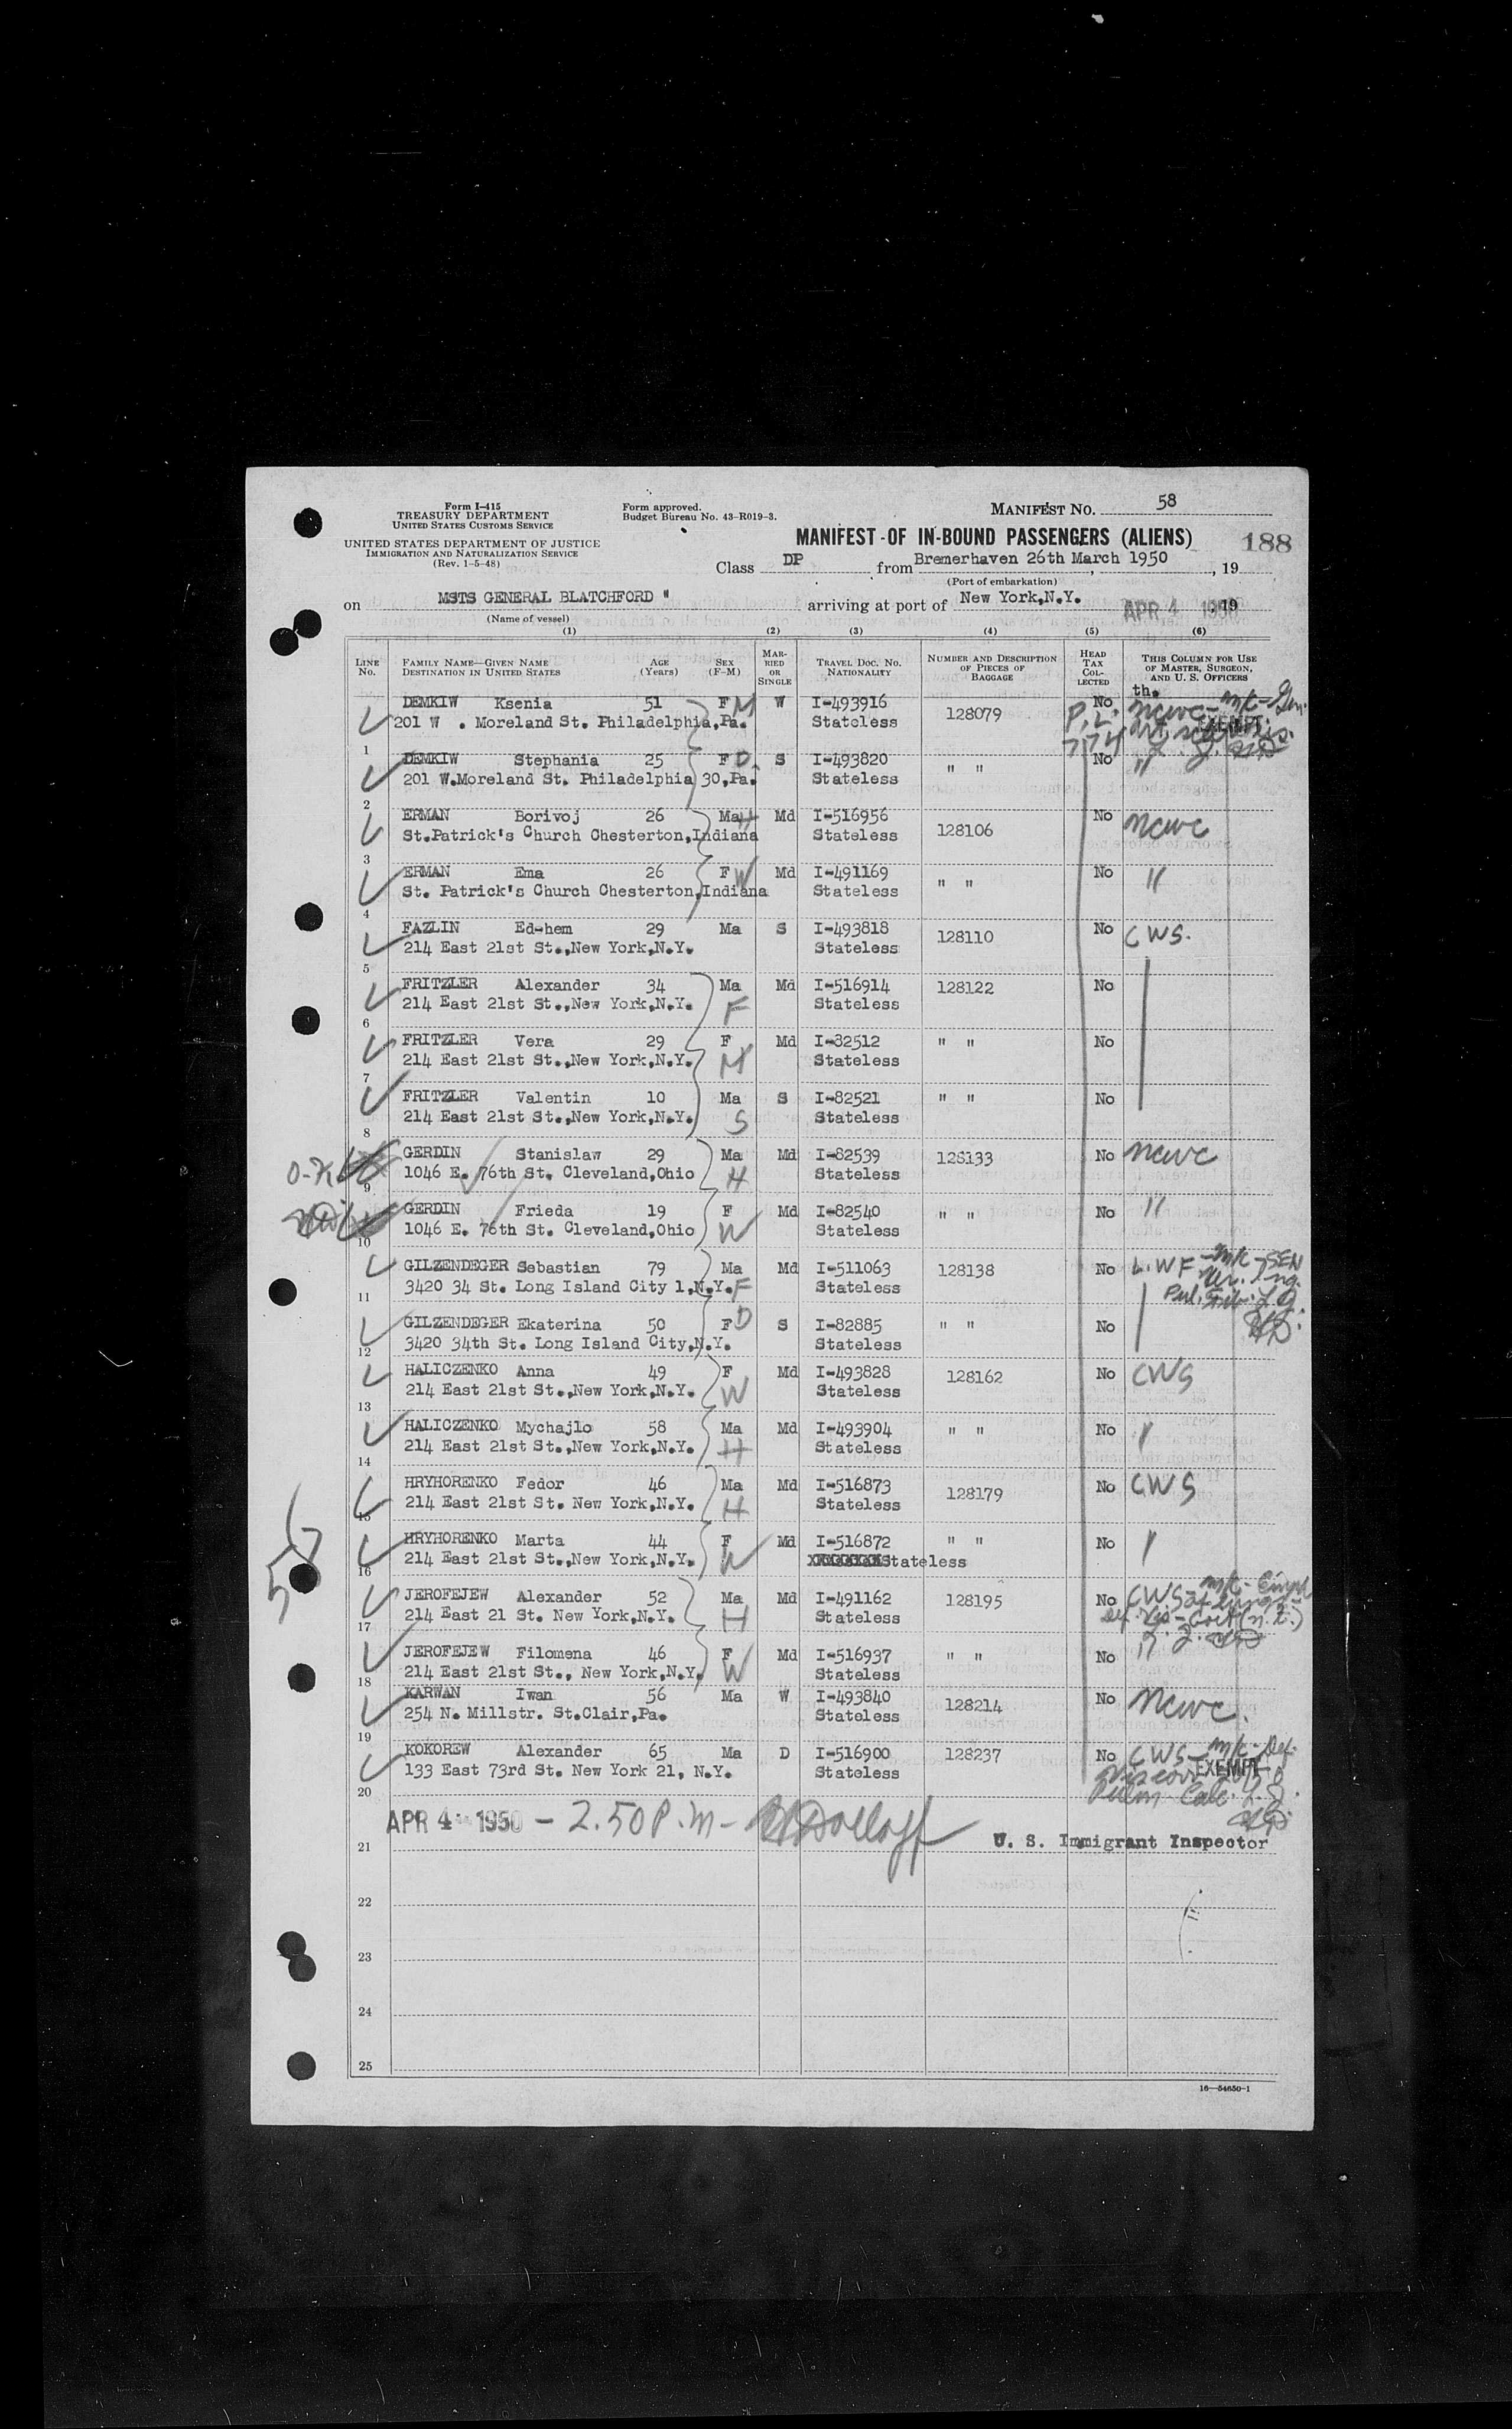 Form I-415
TREASURY DEPARTMENT
UNITED STATES CUSTOMS SERVICE
Form approved.
Budget Bureau No. 43-R019-3.
MANIFEST NO. 58
UNITED STATES DEPARTMENT OF JUSTICE
IMMIGRATION AND NATURALIZATION SERVICE
(Rev. 1-5-48)
MANIFEST OF IN-BOUND PASSENGERS (ALIENS) 188
Class DP from Bremerhaven 26th March 1950, 19
(Port of embarkation)
on MSTS GENERAL BLATCHFORD " arriving at port of New York,N.Y. APR 4 1950, 19
(Name of vessel)
(1) (2) (3) (4) (5) (6)
LINE No. FAMILY NAME—GIVEN NAME DESTINATION IN UNITED STATES AGE (Years) SEX (F-M) MARRIED OR SINGLE TRAVEL DOC. NO. NATIONALITY NUMBER AND DESCRIPTION OF PIECES OF BAGGAGE HEAD TAX COLLECTED THIS COLUMN FOR USE OF MASTER, SURGEON, AND U. S. OFFICERS
DEMKIW Ksenia 51 F M W I-493916 128079 No th. NCWC - m/c - Gen.
201 W . Moreland St. Philadelphia,Pa. Stateless P.L. 774 EXEMPT
1
DEMKIW Stephania 25 F D S I-493820 " " No "
201 W.Moreland St. Philadelphia 30,Pa. Stateless
2
ERMAN Borivoj 26 Ma H Md I-516956 128106 No NCWC
St.Patrick's Church Chesterton,Indiana Stateless
3
ERMAN Ema 26 F W Md I-491169 " " No "
St. Patrick's Church Chesterton,Indiana Stateless
4
FAZLIN Ed-hem 29 Ma S I-493818 128110 No CWS.
214 East 21st St.,New York,N.Y. Stateless
5
FRITZLER Alexander 34 Ma Md I-516914 128122 No
214 East 21st St.,New York,N.Y. F Stateless
6
FRITZLER Vera 29 F Md I-82512 " " No
214 East 21st St.,New York,N.Y. M Stateless
7
FRITZLER Valentin 10 Ma S I-82521 " " No
214 East 21st St.,New York,N.Y. S Stateless
8
O-K GERDIN Stanislaw 29 Ma Md I-82539 128133 No NCWC
1046 E. 76th St. Cleveland,Ohio H Stateless
9
GERDIN Frieda 19 F Md I-82540 " " No "
1046 E. 76th St. Cleveland,Ohio W Stateless
10
GILZENDEGER Sebastian 79 Ma Md I-511063 128138 No L.W F - m/c - SEN
3420 34 St. Long Island City 1,N.Y. F Stateless
11
GILZENDEGER Ekaterina 50 F D S I-82885 " " No
3420 34th St. Long Island City,N.Y. Stateless
12
HALICZENKO Anna 49 F Md I-493828 128162 No CWS
214 East 21st St.,New York,N.Y. W Stateless
13
HALICZENKO Mychajlo 58 Ma Md I-493904 " " No
214 East 21st St.,New York,N.Y. H Stateless
14
HRYHORENKO Fedor 46 Ma Md I-516873 128179 No CWS
214 East 21st St. New York,N.Y. H Stateless
15
HRYHORENKO Marta 44 F Md I-516872 " " No
214 East 21st St.,New York,N.Y. W Stateless
16
JEROFEJEW Alexander 52 Ma Md I-491162 128195 No CWS m/c - Emph
214 East 21 St. New York,N.Y. H Stateless
17
JEROFEJEW Filomena 46 F Md I-516937 " " No
214 East 21st St., New York,N.Y. W Stateless
18
KARWAN Iwan 56 Ma W I-493840 128214 No NCWC.
254 N. Millstr. St.Clair,Pa. Stateless
19
KOKOREW Alexander 65 Ma D I-516900 128237 No CWS - m/c - Def.
133 East 73rd St. New York 21, N.Y. Stateless EXEMPT
20
APR 4 1950 - 2.50 P.m -
U. S. Immigrant Inspector
21
22
23
24
25
16—54650-1